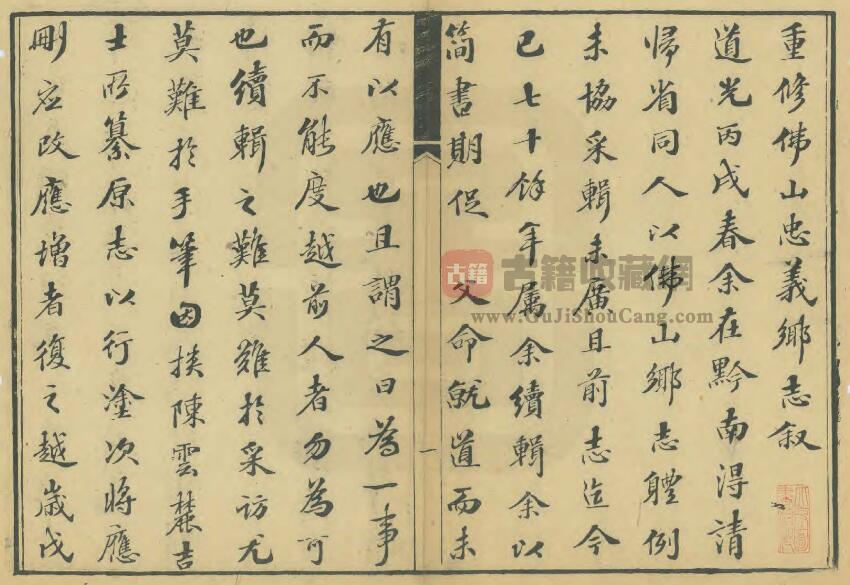 重修佛山忠義鄉志叙
道光丙戌春余在黔南得請
歸省同人以佛山鄉志體例
未協采輯未廣且前志迄今
已七十餘年屬余續輯余以
簡書期促 父命就道而未
有以應也且謂之曰為一事
而不能度越前人者勿為可
也續輯之難莫難於采訪尤
莫難於手筆因挾陳雲麓吉
士所纂原志以行塗次將應
刪应改應增者復之越歲戊
一
古籍
古籍收藏網
www.GuJiShouCang.com